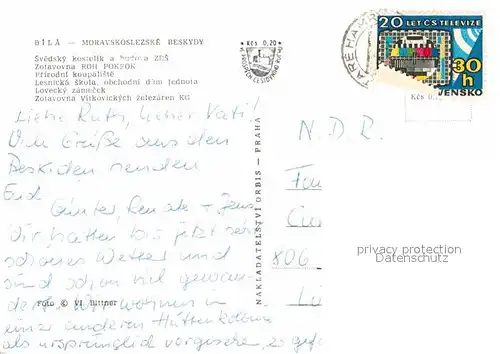 BÍLÁ — MORAVSKOSLEZSKÉ BESKYDY
Švédský kostelík a budova ZDŠ
Zotavovna ROH POKROK
Přírodní koupaliště
Lesnická škola, obchodní dům Jednota
Lovecký zámeček
Zotavovna Vítkovických železáren KG
Kčs 0,20
20 LET ČS TELEVIZE
30 h
Kčs 0,
Liebe Ruth, lieber Kati!
Viele Grüße aus den
Beskiden senden
Euch
Günter, Renate + Jens
Wir hatten bis jetzt sehr
schönes Wetter und
sind schon viel gewan-
dert. Wir wohnen in
einer anderen Hüttenkolonie
als ursprünglich vorgesehen, so
Foto © Vl. Büttner
NAKLADATELSTVÍ ORBIS — PRAHA
N.D.R.
806
privacy protection
Datenschutz